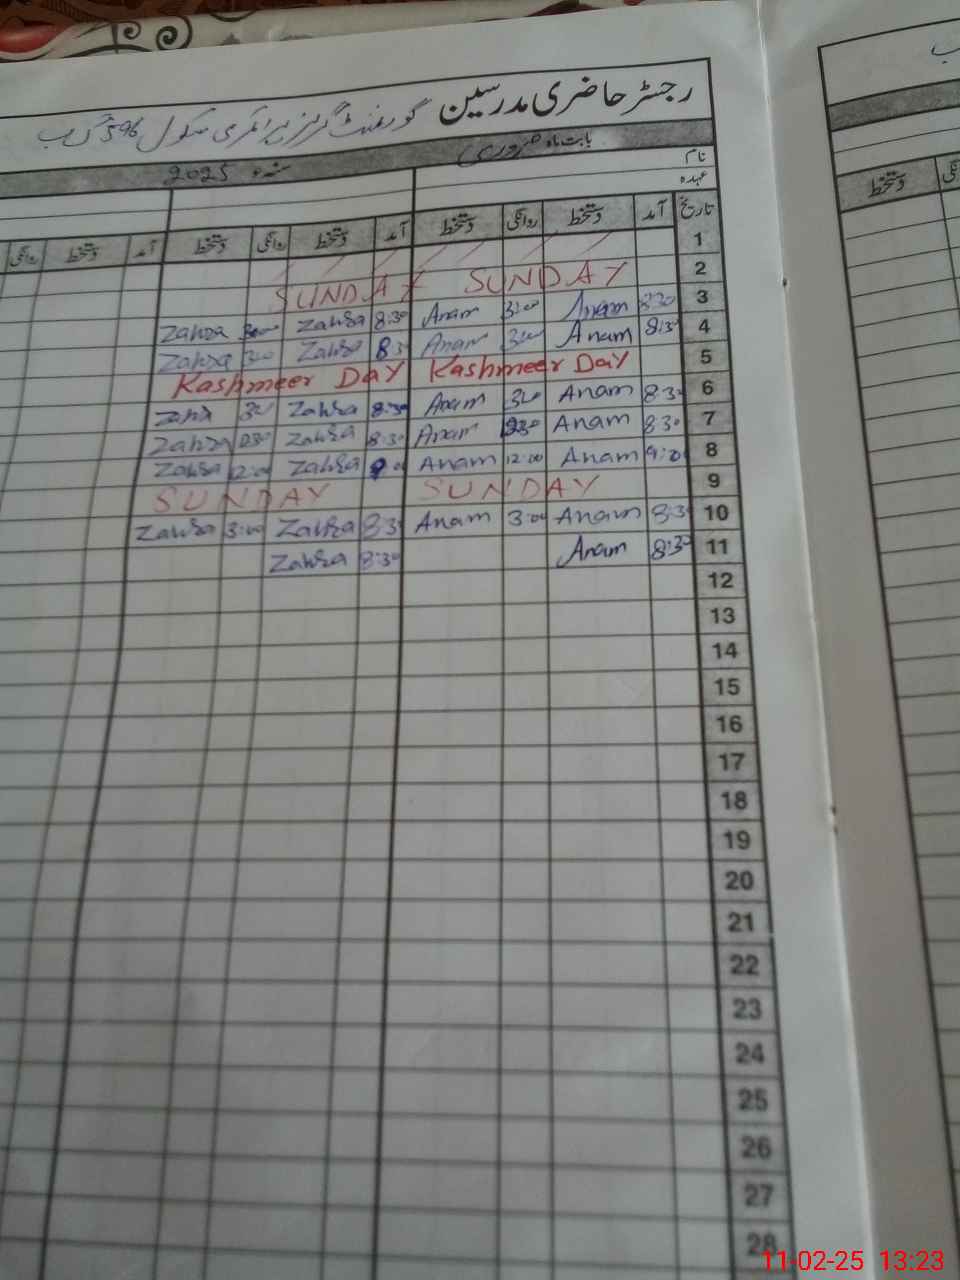 رجسٹر حاضری مدرسین گورنمنٹ گرلز پرائمری سکول 596 گ ب
بابت ماہ فروری سنہ 2025
نام
عہدہ
تاریخ آمد دستخط روانگی دستخط آمد دستخط روانگی دستخط آمد دستخط روانگی
1
2 SUNDAY SUNDAY
3 8:30 Anam 3:00 Anam 8:30 Zahra 3:00 Zahra
4 8:30 Anam 3:00 Anam 8:30 Zahra 3:00 Zahra
5 Kashmeer Day Kashmeer DAY
6 8:30 Anam 3:00 Anam 8:30 Zahra 3:00 Zahra
7 8:30 Anam 1230 Anam 8:30 Zahra 1230 Zahra
8 9:00 Anam 12:00 Anam 9:00 Zahra 12:00 Zahra
9 SUNDAY SUNDAY
10 8:30 Anam 3:00 Anam 8:30 Zahra 3:00 Zahra
11 8:30 Anam 8:30 Zahra
12
13
14
15
16
17
18
19
20
21
22
23
24
25
26
27
28
دستخط
11-02-25 13:23